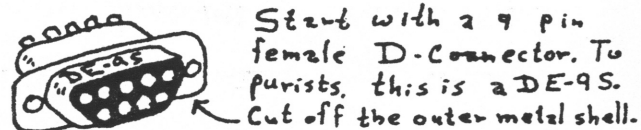 Start with a 9 pin
female D-Connector. To
purists, this is a DE-9S.
Cut off the outer metal shell.
DE-9S